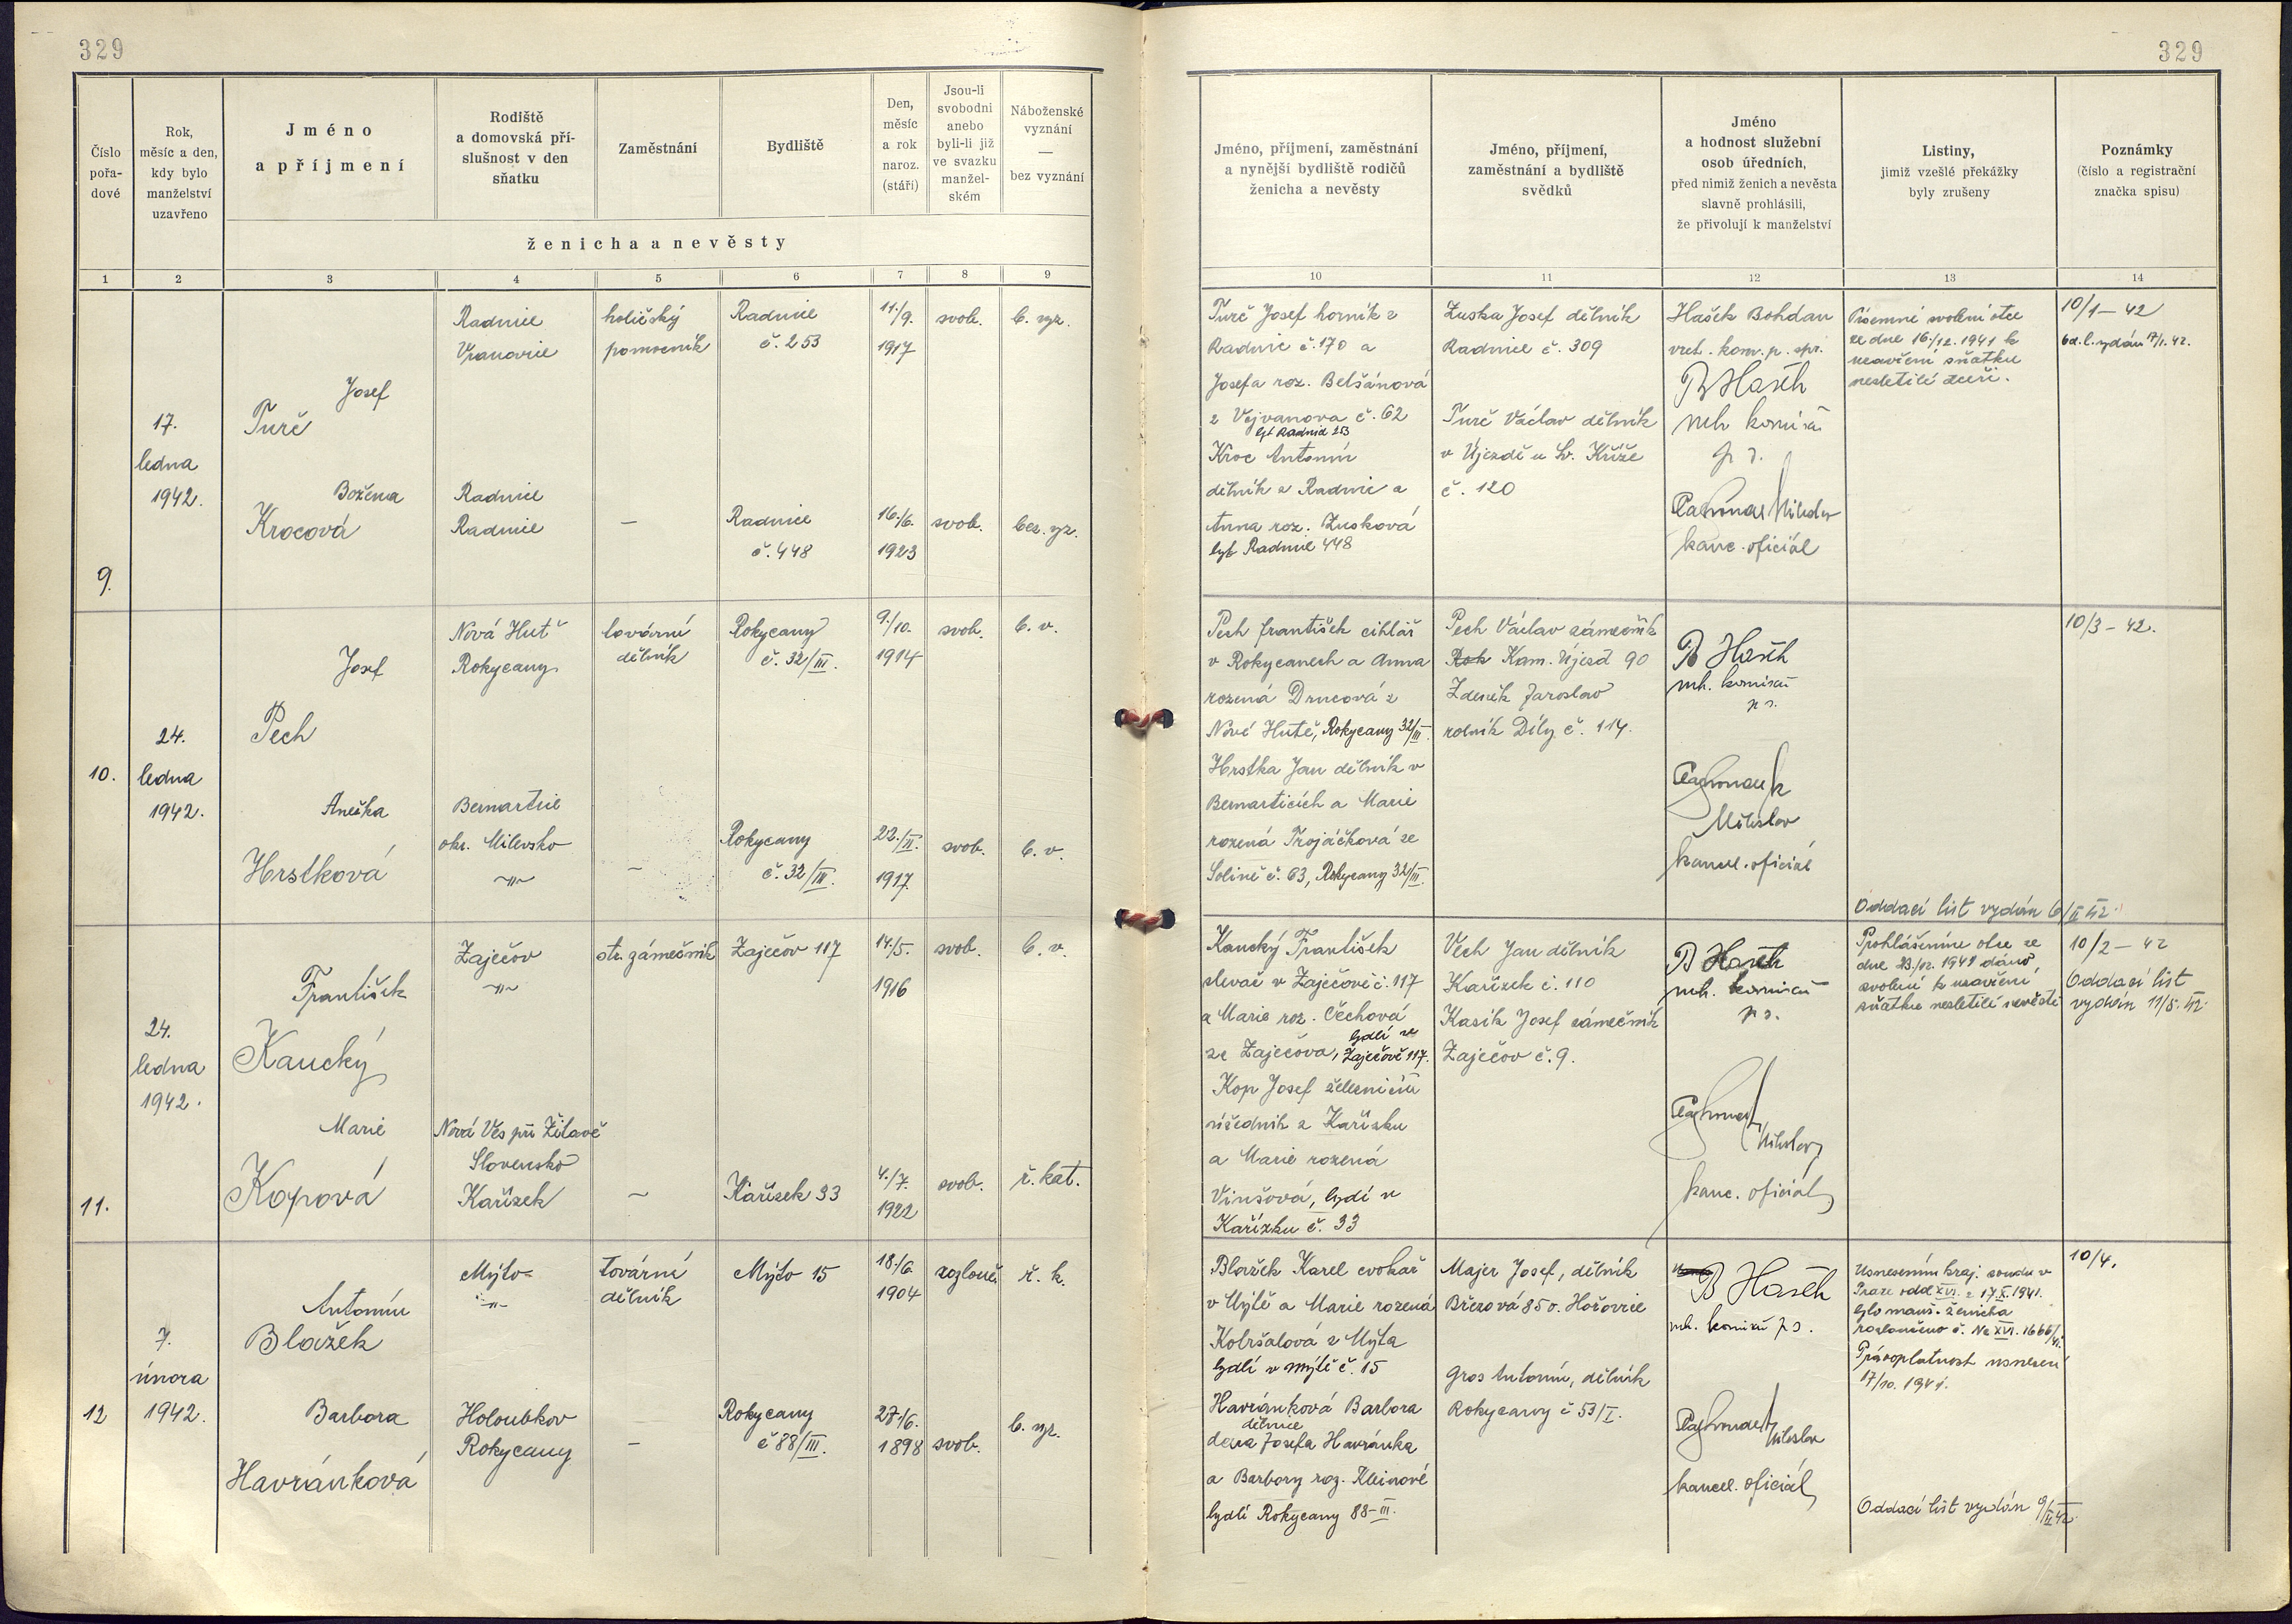 329
329
Číslo
pořa-
dové
Rok,
měsíc a den,
kdy bylo
manželství
uzavřeno
Jméno
a příjmení
Rodiště
a domovská pří-
slušnost v den
sňatku
Zaměstnání
Bydliště
Den,
měsíc
a rok
naroz.
(stáří)
Jsou-li
svobodni
anebo
byli-li již
ve svazku
manžel-
ském
Náboženské
vyznání
—
bez vyznání
ženicha a nevěsty
1 2 3 4 5 6 7 8 9
Jméno, příjmení, zaměstnání
a nynější bydliště rodičů
ženicha a nevěsty
Jméno, příjmení,
zaměstnání a bydliště
svědků
Jméno
a hodnost služební
osob úředních,
před nimiž ženich a nevěsta
slavně prohlásili,
že přivolují k manželství
Listiny,
jimiž vzešlé překážky
byly zrušeny
Poznámky
(číslo a registrační
značka spisu)
10 11 12 13 14
9.
17.
ledna
1942.
Josef
Turč
Radnice
Vranovice
holičský
pomocník
Radnice
č. 253
11./9.
1917
svob.
b. vyz.
Božena
Krocová
Radnice
Radnice
—
Radnice
č. 448
16./6.
1923
svob.
bez. vyz.
Turč Josef horník z
Radnic č. 170 a
Josefa roz. Belšánová
z Vejvanova č. 62
byt Radnice 253
Kroc Antonín
dělník z Radnic a
Anna roz. Zusková
byt Radnice 448
Zuska Josef dělník
Radnice č. 309
Turč Václav dělník
v Újezdě u Sv. Kříže
č. 120
Hašek Bohdan
vrch. kom. p. spr.
B Hašek
vrch komisař
p. s.
Miloslav
kanc. oficiál
Písemné svolení otce
ze dne 16./12. 1941 k
uzavření sňatku
nezletilé dceři.
10/1 — 42
od. l. vydán 17/1. 42.
10.
24.
ledna
1942.
Josef
Pech
Nová Huť
Rokycany
tovární
dělník
Rokycany
č. 32/III.
9./10.
1914
svob.
b. v.
Anežka
Hrstková
Bernartice
okr. Milevsko
—"—
—
Rokycany
č. 32/III.
22./II.
1917.
svob.
b. v.
Pech František cihlář
v Rokycanech a Anna
rozená Drncová z
Nové Hutě, Rokycany 32/III.
Hrstka Jan dělník v
Bernarticích a Marie
rozená Trojáčková ze
č. 63, Rokycany 32/III.
Pech Václav zámečník
Rok Kam. Újezd 90
Zdeněk Jaroslav
rolník Díly č. 114.
B Hašek
vrch. komisař
p s.
Miloslav
kancel. oficiál
10/3 — 42.
Oddací list vydán 6/II 42.
11.
24.
ledna
1942.
František
Kaucký
Zaječov
—"—
str. zámečník
Zaječov 117
14./5.
1916
svob.
b. v.
Marie
Kopová
Nová Ves při Žitavě
Slovensko
Kařízek
—
Kařízek 33
4./7.
1922
svob.
ř. kat.
Kaucký František
slevač v Zaječově č. 117
a Marie roz. Čechová
ze Zaječova, bydlí v
Zaječově 117.
Kop Josef železniční
úředník z Kařízku
a Marie rozená
Vinšová, bydlí v
Kařízku č. 33
Vech Jan dělník
Kařízek č. 110
Kasík Josef zámečník
Zaječov č. 9.
B Hašek
vrch. komisař
p s.
Miloslav
kanc. oficiál
Prohlášením otce ze
dne 23./12. 1941 dáno
svolení k uzavření
sňatku nezletilé nevěstě
10/2 — 42
Oddací list
vydán 11/5. 42.
12
7.
února
1942.
Antonín
Blažek
Mýto
—"—
tovární
dělník
Mýto 15
18./6.
1904
rozlouč.
ř. k.
Barbora
Havránková
Holoubkov
Rokycany
—
Rokycany
č 88/III.
27/6.
1898
svob.
b. vyz.
Blažek Karel cvokař
v Mýtě a Marie rozená
Kobršalová z Mýta
bydlí v Mýtě č. 15
Havránková Barbora
dělnice
dcera Josefa Havránka
a Barbory roz. Kleinové
bydlí Rokycany 88-III.
Majer Josef, dělník
Březová 85 o. Hořovice
Gros Antonín, dělník
Rokycany č 53/I.
B Hašek
vrch. komisař p s.
Miloslav
kancel. oficiál
Usnesením kraj. soudu v
Praze odd XVI. z 17.X. 1941.
bylo manž. ženicha
rozloučeno č. Nc XVI. 1666/41.
Právoplatnost usnesení
17/10. 1941.
10/4.
Oddací list vydán 9/II 42.